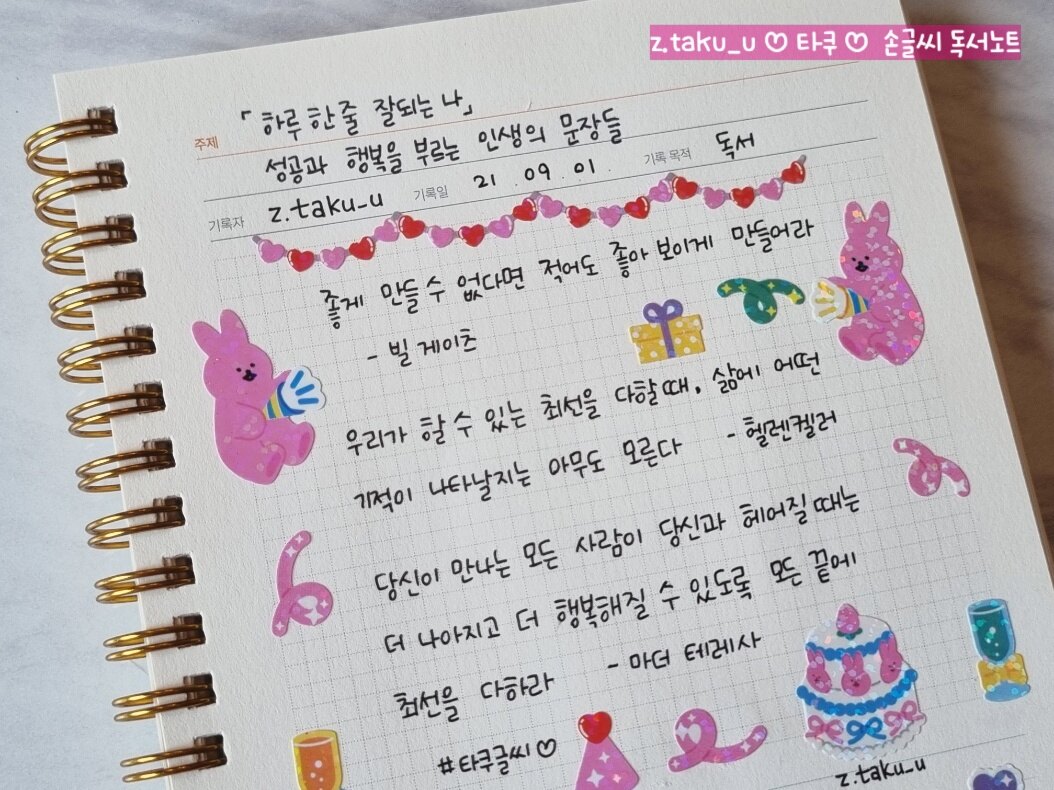 z.taku_u ♡ 타쿠 ♡ 손글씨 독서노트
주제 「하루 한 줄 잘되는 나」
성공과 행복을 부르는 인생의 문장들
기록자 z.taku_u 기록일 21 . 09 . 01 . 기록 목적 독서
좋게 만들 수 없다면 적어도 좋아 보이게 만들어라
- 빌 게이츠
우리가 할 수 있는 최선을 다할 때, 삶에 어떤
기적이 나타날지는 아무도 모른다 - 헬렌켈러
당신이 만나는 모든 사람이 당신과 헤어질 때는
더 나아지고 더 행복해질 수 있도록 모든 끝에
최선을 다하라 - 마더 테레사
#타쿠글씨♡
z.taku_u